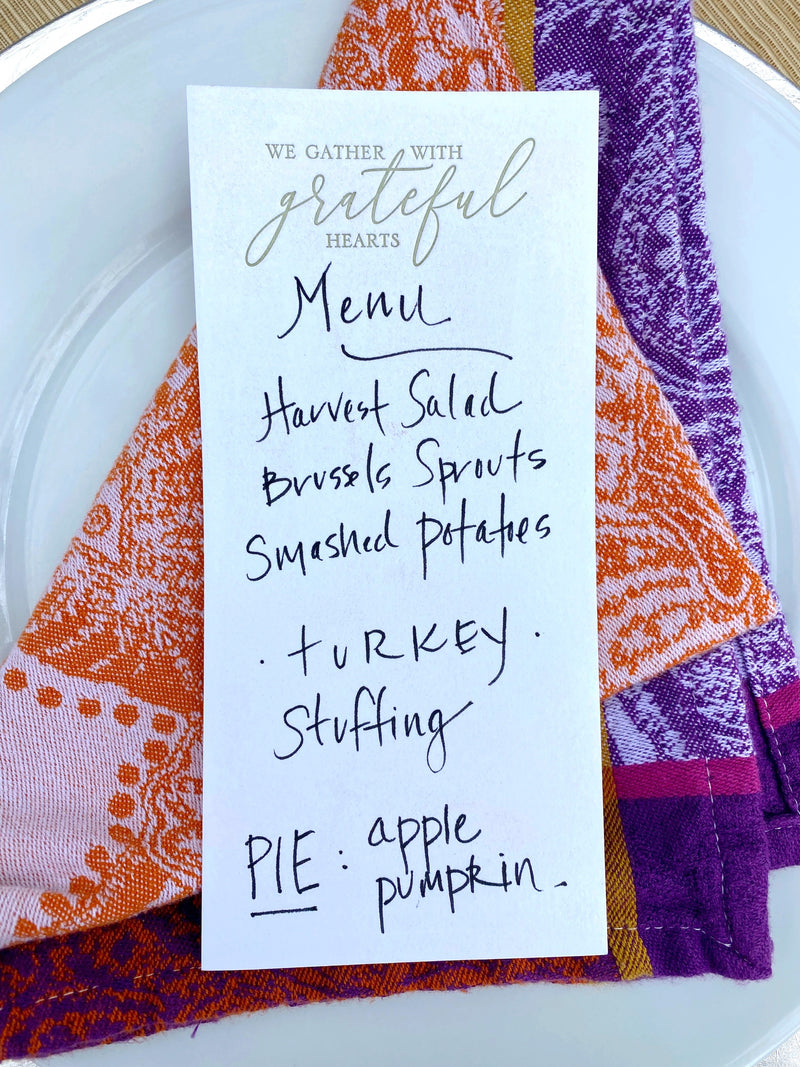 WE GATHER WITH
grateful
HEARTS
Menu
Harvest Salad
Brussels Sprouts
Smashed potatoes
· TURKEY ·
Stuffing
PIE: apple
pumpkin.